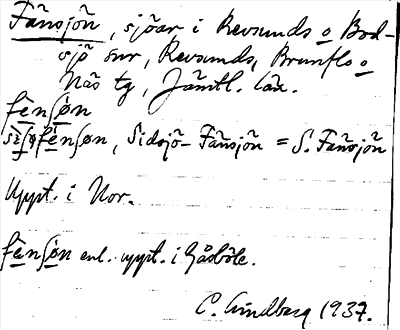 Fänsjön, sjöar i Revsunds o Bod-
sjö snr, Revsunds, Brunflo o
Näs tg, Jämtl. län.
fènʃøn
sìʃøfènʃøn, Sidsjö-Fänsjön = S. Fänsjön
Uppt. i Nor.
fènʃøn enl. uppt. i Gåsböle.
C. Lindberg 1937.